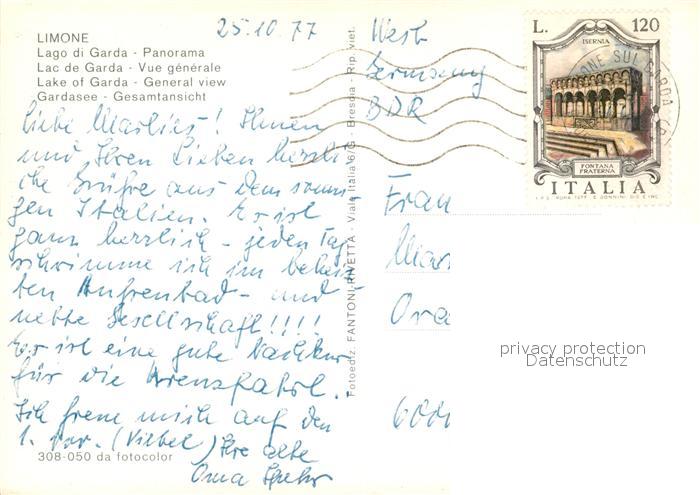 25.10.77
LIMONE
Lago di Garda - Panorama
Lac de Garda - Vue générale
Lake of Garda - General view
Gardasee - Gesamtansicht
Liebe Marlies! Ihnen
und Ihren Lieben herzli
che Grüße aus dem sonni
gen Italien. Es ist
ganz herrlich - jeden Tag
schwimme ich im beheiz
ten - und
nette Gesellschaft!!!!
Es ist eine gute Nachkur
für die
Ich freue mich auf den
1. Nov. (Vilbel) Ihre alte
Oma
308-050 da fotocolor
Fotoediz. FANTONI-RIVETTA - Viale Italia 6/G - Brescia - Rip. viet.
West
Germany
BDR
Frau
Mar
6000
L. 120
ISERNIA
FONTANA
FRATERNA
ITALIA
privacy protection
Datenschutz